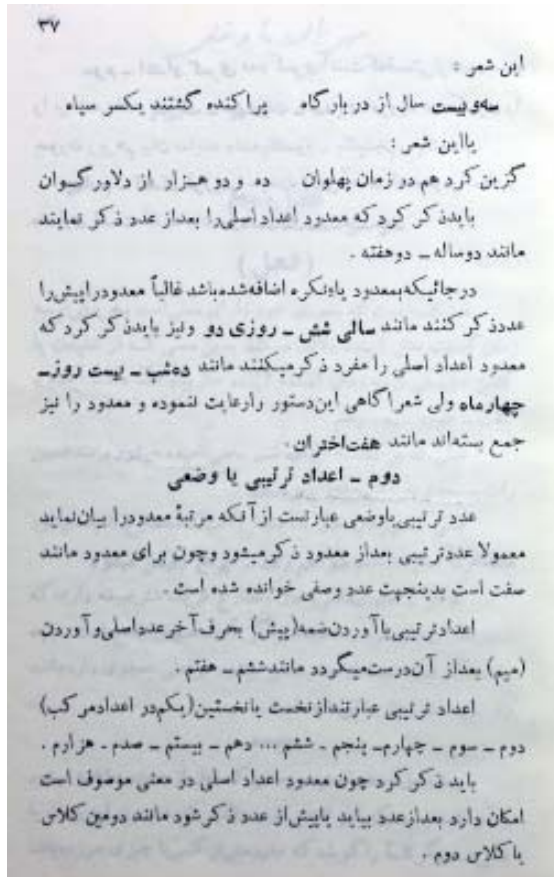 ۳۷
این شعر :
سه‌و‌بیست سال از در بارگاه پراکنده گشتند یکسر سپاه
یااین شعر :
گزین کرد هم در زمان پهلوان ده و دو هـزار از دلاور گـوان
بایدذکر کرد که معدود اعداد اصلی را بعداز عدد ذکر نمایند
مانند دوساله ـ دوهفته .
درجائیکه‌بمعدود یاءنکره اضافه‌شده‌باشد غالباً معدودراپیش‌را
عددذکر کنند مانند سالی شش ـ روزی دو ونیز بایدذکر کرد که
معدود اعداد اصلی را مفرد ذکرمیکنند مانند ده‌شب ـ بیست روزـ
چهارماه ولی شعراگاهی این‌دستور رارعایت ننموده و معدود را نیز
جمع بسته‌اند مانند هفت‌اختران.
دوم ـ اعداد ترتیبی یا وضعی
عدد ترتیبی‌یاوضعی عبارتست از آنکه مرتبهٔ معدودرا بیان‌نماید
معمولا عددترتیبی بعداز معدود ذکرمیشود وچون برای معدود مانند
صفت است بدینجهت عدد وصفی خوانده شده است .
اعدادترتیبی‌باآوردن‌ضمه(پیش) بحرف‌آخرعدداصلی‌وآوردن
(میم) بعداز آن‌درست‌میگردد مانندششم ـ هفتم .
اعداد ترتیبی عبارتنداز‌نخست یانخستین(یکم‌در اعدادمرکب)
دوم ـ سوم ـ چهارم‌ـ پنجم ـ ششم ... دهم ـ بیستم ـ صدم ـ هزارم .
باید ذکر کرد چون معدود اعداد اصلی در معنی موصوف است
امکان دارد بعدازعدد بیاید یاپیش‌از عدد ذکرشود مانند دومین کلاس
یاکلاس دوم .